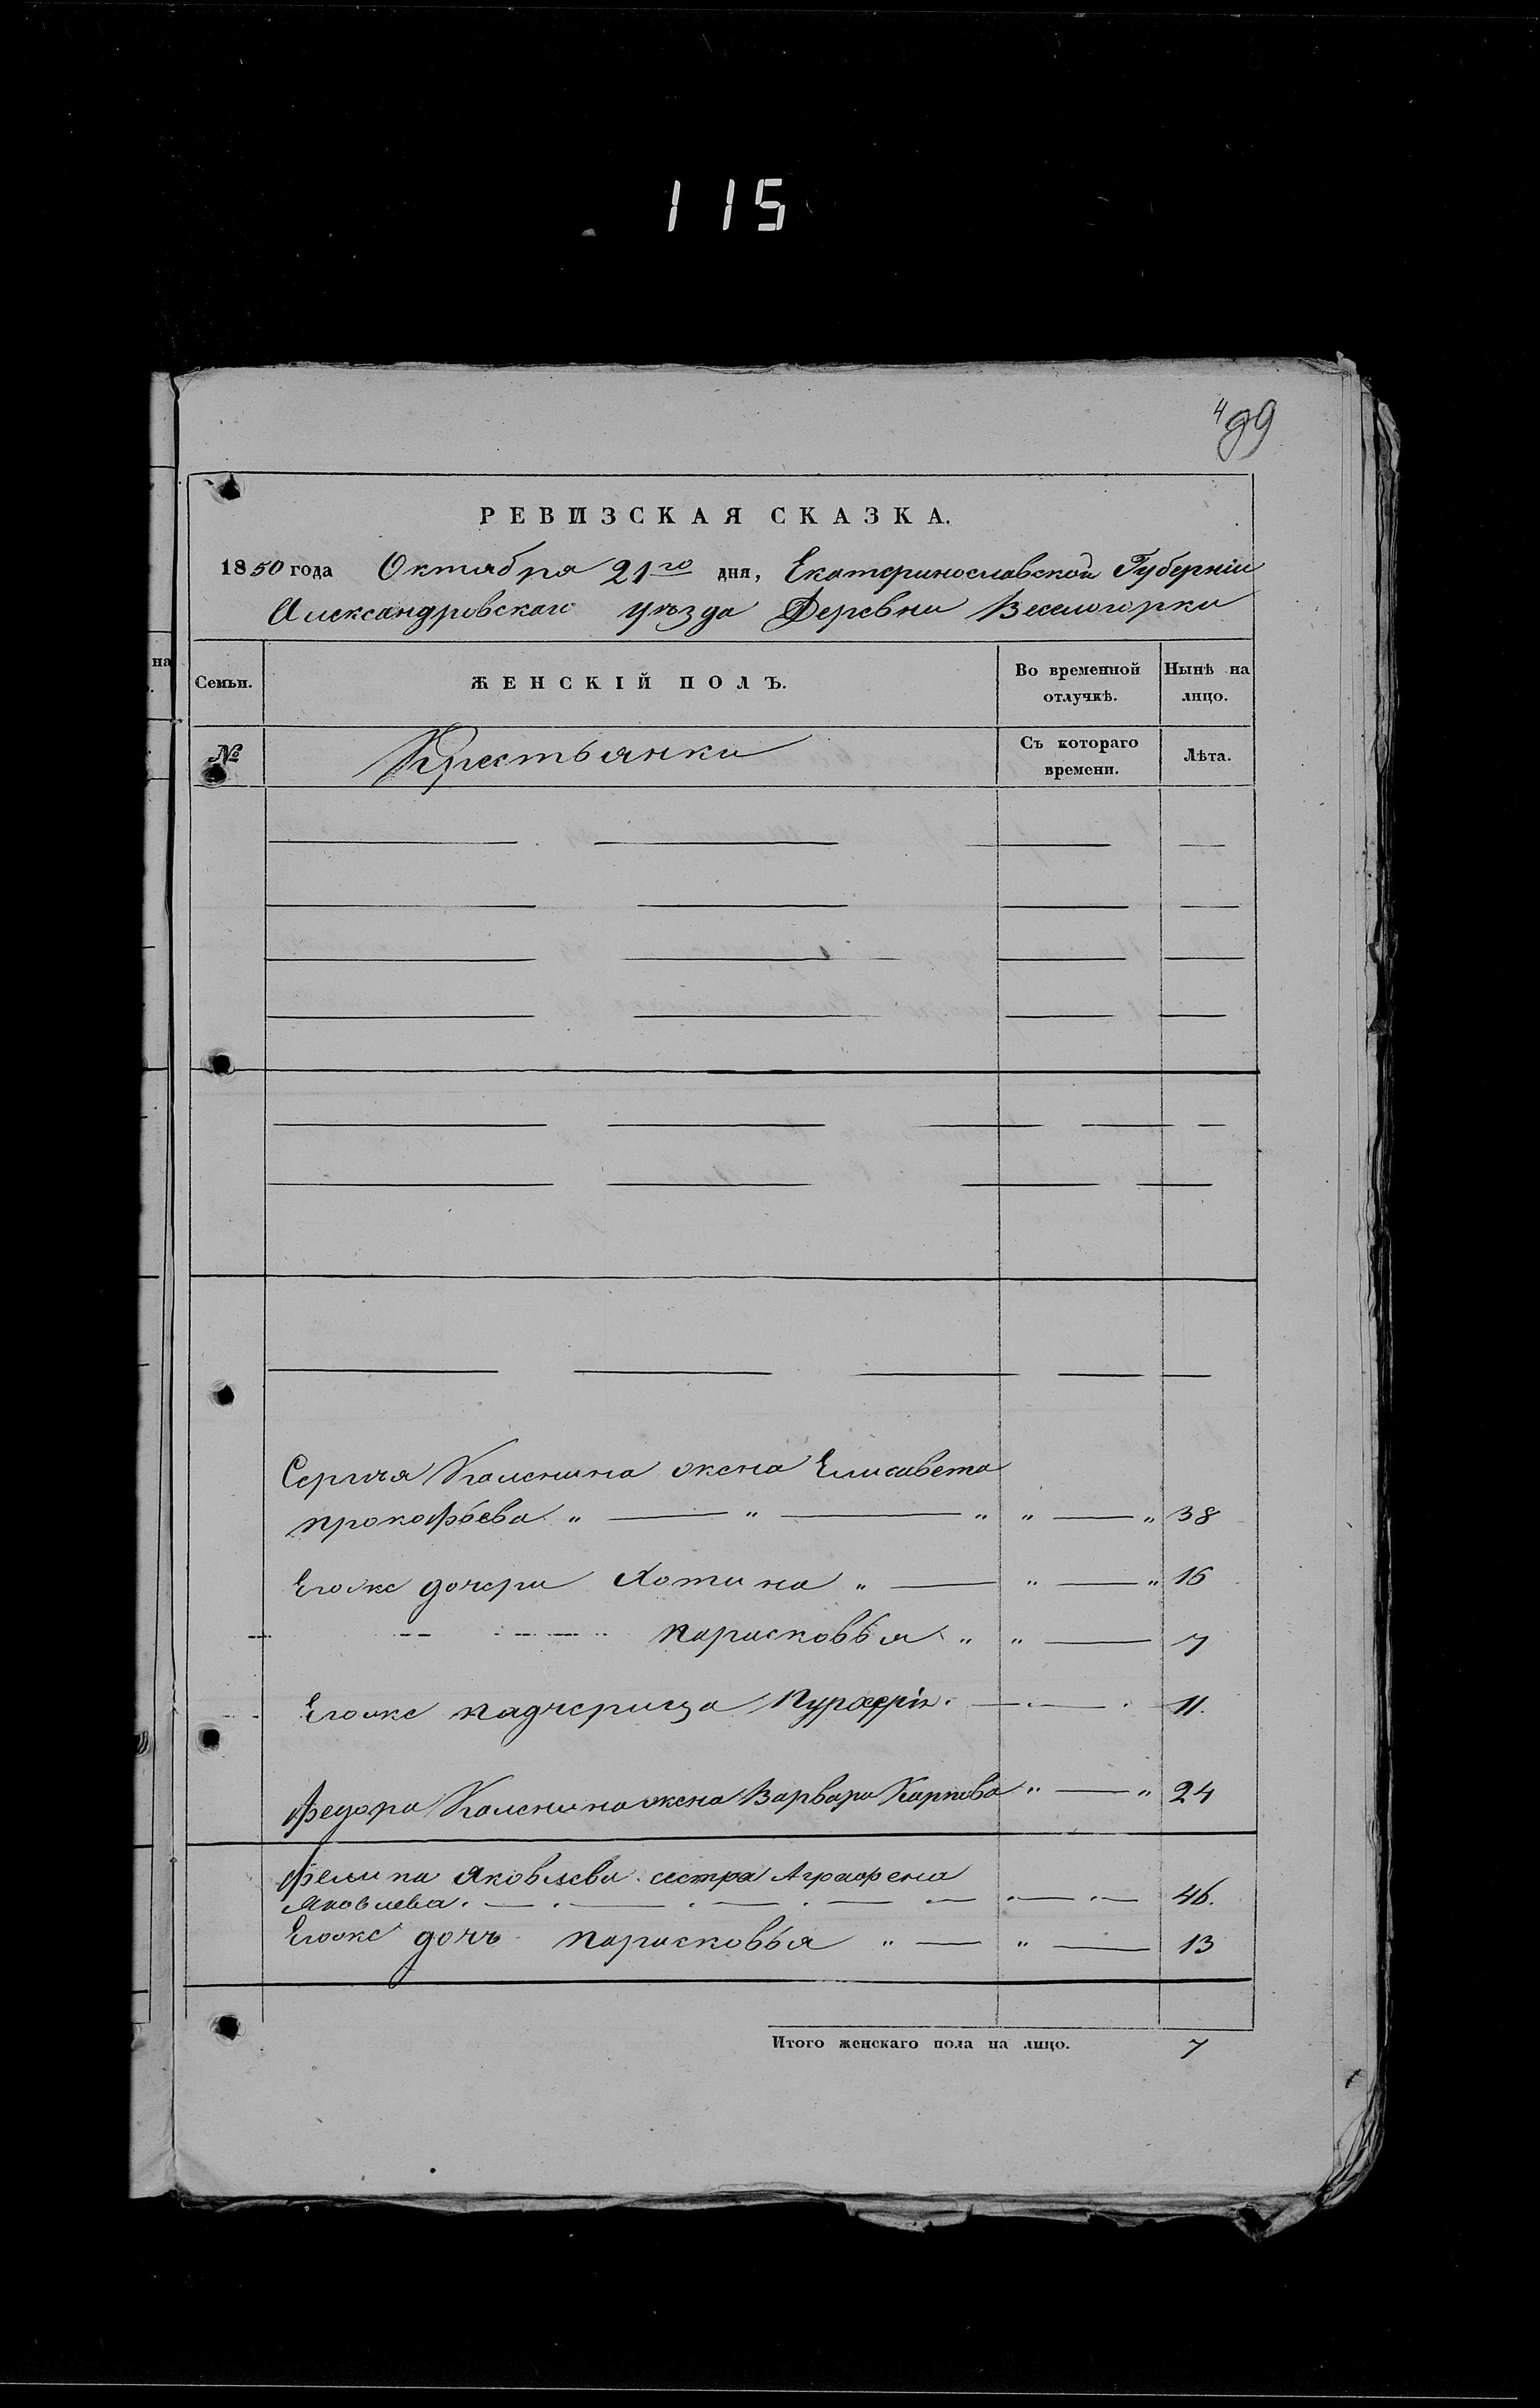 115
499
РЕВИЗСКАЯ СКАЗКА.
1850 года Октября 21го дня, Екатеринославской Губерніи
Александровскаго уѣзда Деревни Веселогорки
на
Семьи. ЖЕНСКІЙ ПОЛЪ. Во временной отлучкѣ. Нынѣ на лицо.
№ Крестьянки Съ котораго времени. Лѣта.
Сергѣя Каленина жена Елисавета
Прокофьева " — " — " " — " 38
Егоже дочери Хотина " — " — " 16
Парасковья " " — 7
Егоже падчерица — 11.
Федора Каленина жена Варвара Карпова " — " 24
Филипа Яковлева сестра Аграфена
Яковлева. — 46.
Егоже дочь Парасковья " — " — 13
Итого женскаго пола на лицо. 7